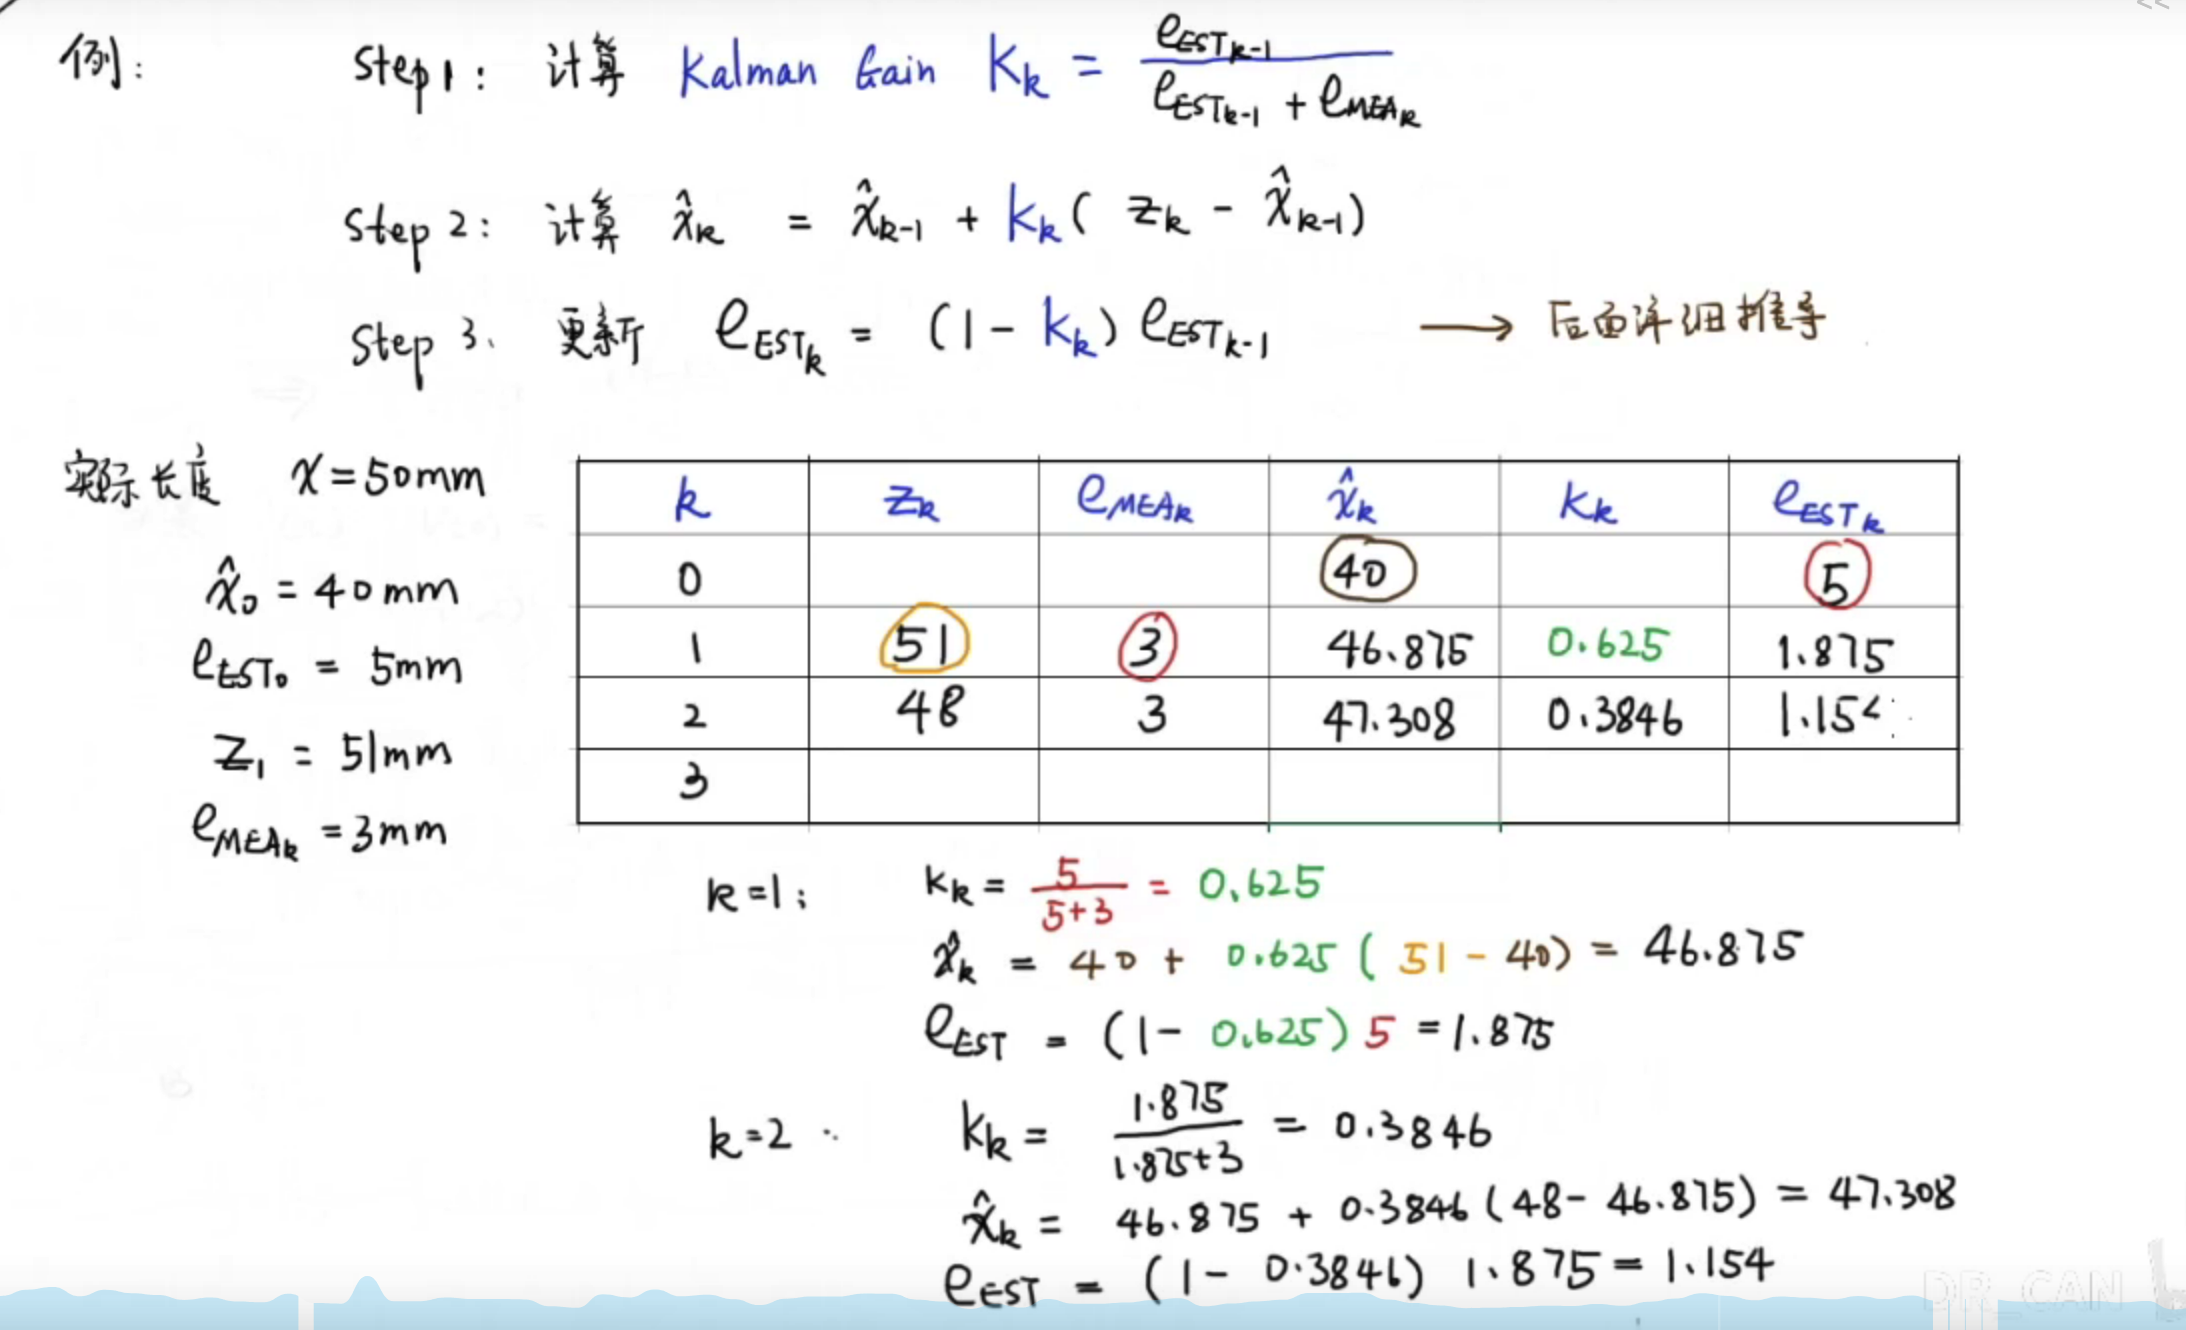 <<
例: Step1: 计算 Kalman Gain Kₖ = e_EST_{k-1} / (e_EST_{k-1} + e_MEA_k)
Step 2: 计算 x̂ₖ = x̂ₖ₋₁ + Kₖ( zₖ - x̂ₖ₋₁)
Step 3. 更新 e_EST_k = (1 - Kₖ) e_EST_{k-1} → 后面详细推导
实际长度 x = 50mm
x̂₀ = 40mm
e_EST₀ = 5mm
z₁ = 51mm
e_MEA_k = 3mm
k zₖ e_MEA_k x̂ₖ Kₖ e_EST_k
0 40 5
1 51 3 46.875 0.625 1.875
2 48 3 47.308 0.3846 1.154
3
k=1: Kₖ = 5 / (5+3) = 0.625
x̂ₖ = 40 + 0.625 ( 51 - 40) = 46.875
e_EST = (1 - 0.625) 5 = 1.875
k=2: Kₖ = 1.875 / (1.875+3) = 0.3846
x̂ₖ = 46.875 + 0.3846 (48 - 46.875) = 47.308
e_EST = (1 - 0.3846) 1.875 = 1.154
DR_CAN